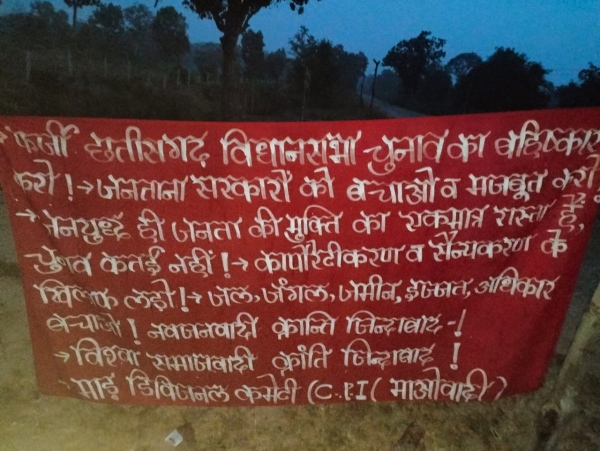 फर्जी छत्तीसगढ़ विधानसभा चुनाव का बहिष्कार
करो! → जनताना सरकारों को बचाओ व मजबूत करो
→ जनयुद्ध ही जनता की मुक्ति का एकमात्र रास्ता है,
चुनाव कतई नहीं! → कार्पोरेटीकरण व सैन्यकरण के
खिलाफ लड़ो! → जल, जंगल, जमीन, इज्जत, अधिकार
बचाओ! नवजनवादी क्रान्ति जिन्दाबाद -!
→ विश्व समाजवादी क्रांति जिन्दाबाद !
- माड़ डिविजनल कमेटी (C.P.I ( माओवादी )